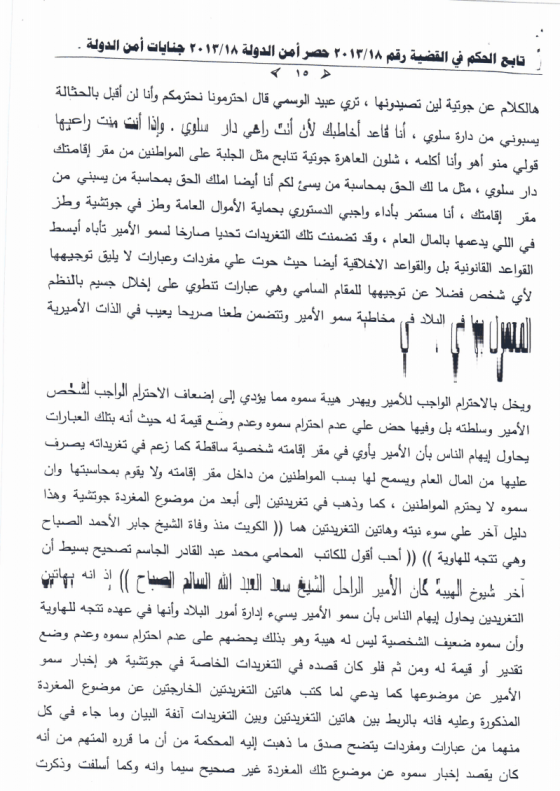 تابع الحكم في القضية رقم ٢٠١٣/١٨ حصر أمن الدولة ٢٠١٣/١٨ جنايات أمن الدولة .
﴿ ١٥ ﴾
هالكلام عن جوتية لين تصيدونها ، تري عبيد الوسمي قال احترمونا نحترمكم وأنا لن أقبل بالحثالة
يسبوني من دارة سلوي ، أنا قاعد أخاطبك لأن أنت راعي دار سلوي . وإذا أنت منت راعيها
قولي منو أهو وأنا أكلمه ، شلون العاهرة جوتية تنابح مثل الجلبة على المواطنين من مقر إقامتك
دار سلوي ، مثل ما لك الحق بمحاسبة من يسئ لكم أنا أيضا املك الحق بمحاسبة من يسبني من
مقر إقامتك ، أنا مستمر بأداء واجبي الدستوري بحماية الأموال العامة وطز في جوتشية وطز
في اللي يدعمها بالمال العام ، وقد تضمنت تلك التغريدات تحديا صارخا لسمو الأمير تأباه أبسط
القواعد القانونية بل والقواعد الاخلاقية أيضا حيث حوت علي مفردات وعبارات لا يليق توجيهها
لأي شخص فضلا عن توجيهها للمقام السامي وهي عبارات تنطوي على إخلال جسيم بالنظم
المعمول بها في البلاد في مخاطبة سمو الأمير وتتضمن طعنا صريحا يعيب في الذات الأميرية
ويخل بالاحترام الواجب للأمير ويهدر هيبة سموه مما يؤدي إلى إضعاف الاحترام الواجب لشخص
الأمير وسلطته بل وفيها حض علي عدم احترام سموه وعدم وضع قيمة له حيث أنه بتلك العبارات
يحاول إيهام الناس بأن الأمير يأوي في مقر إقامته شخصية ساقطة كما زعم في تغريداته يصرف
عليها من المال العام ويسمح لها بسب المواطنين من داخل مقر إقامته ولا يقوم بمحاسبتها وان
سموه لا يحترم المواطنين ، كما وذهب في تغريدتين إلى أبعد من موضوع المغردة جوتشية وهذا
دليل آخر علي سوء نيته وهاتين التغريدتين هما (( الكويت منذ وفاة الشيخ جابر الأحمد الصباح
وهي تتجه للهاوية )) (( أحب أقول للكاتب المحامي محمد عبد القادر الجاسم تصحيح بسيط أن
آخر شيوخ الهيبة كان الأمير الراحل الشيخ سعد العبد الله السالم الصباح )) إذ انه بهاتين
التغريدين يحاول إيهام الناس بأن سمو الأمير يسيء إدارة أمور البلاد وأنها في عهده تتجه للهاوية
وأن سموه ضعيف الشخصية ليس له هيبة وهو بذلك يحضهم على عدم احترام سموه وعدم وضع
تقدير أو قيمة له ومن ثم فلو كان قصده في التغريدات الخاصة في جوتشية هو إخبار سمو
الأمير عن موضوعها كما يدعي لما كتب هاتين التغريدتين الخارجتين عن موضوع المغردة
المذكورة وعليه فانه بالربط بين هاتين التغريدتين وبين التغريدات آنفة البيان وما جاء في كل
منهما من عبارات ومفردات يتضح صدق ما ذهبت إليه المحكمة من أن ما قرره المتهم من أنه
كان يقصد إخبار سموه عن موضوع تلك المغردة غير صحيح سيما وانه وكما أسلفت وذكرت